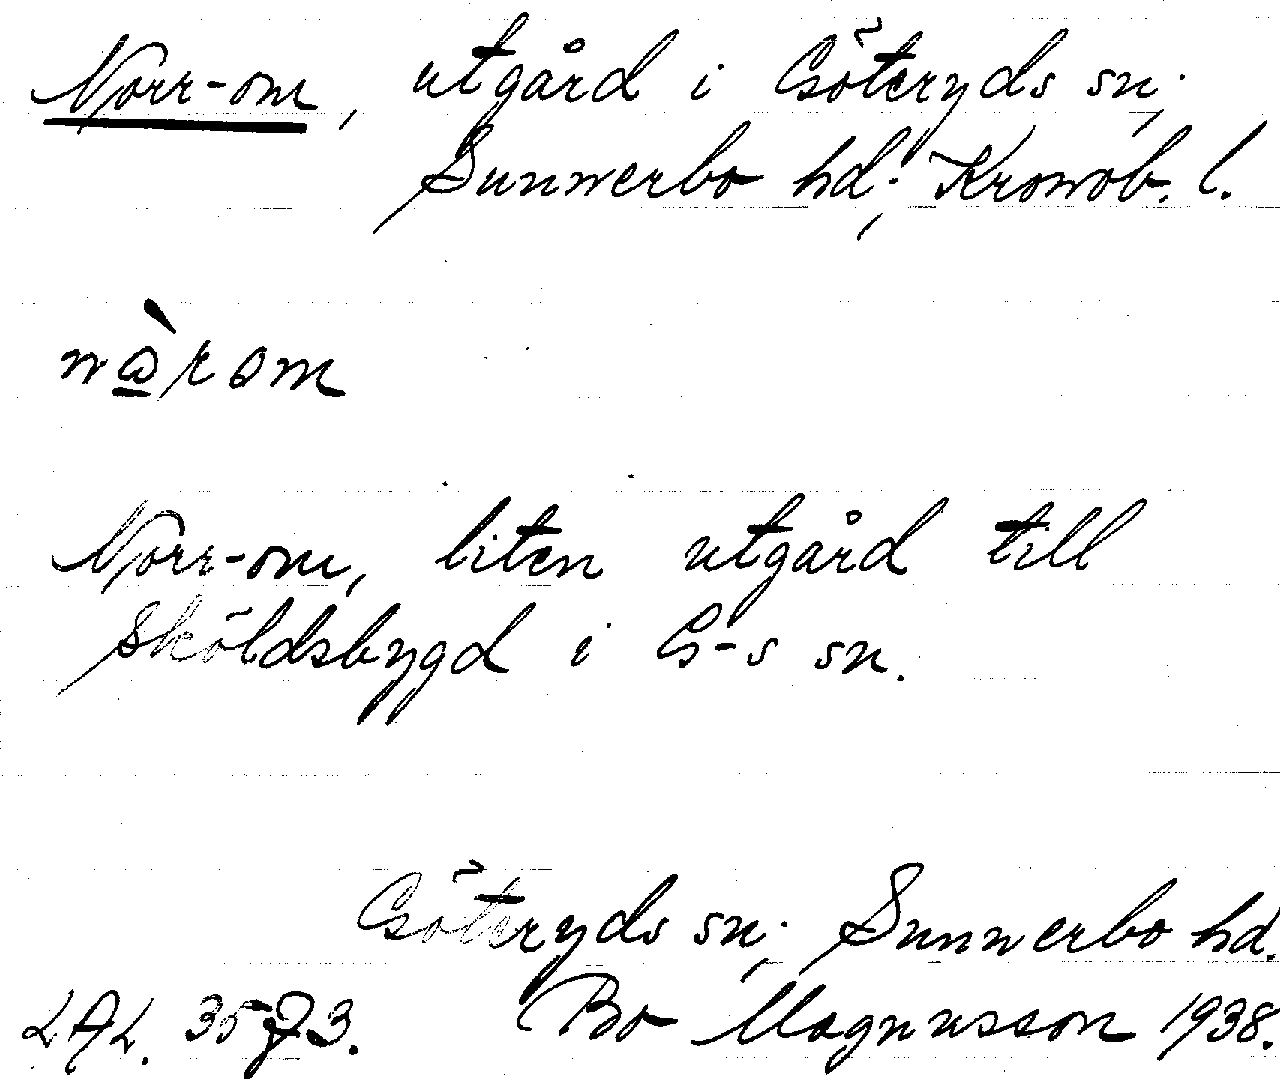 Norr-om, utgård i Göteryds sn.,
Sunnerbo hd., Kronob. l.
Norr-om, liten utgård till
Sköldsbygd i G-s sn.
Göteryds sn., Sunnerbo hd.
LAL. 3573. Bo Magnusson 1938.